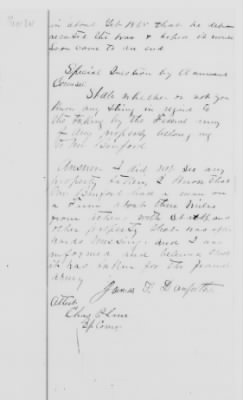 in about Feb 1865 that he
the war & hoped it would
soon come to an end
Special Question by Claimants
Counsel
State whether or not you
know any thing in regard to
the taking by the Federal army
of any property belong ing
to Mr Binford
Answer I did not see any
property taken, I know that
Mr Binford had a man on
a Farm about three miles
from with
other property that was after
wards missing and I am
informed and believe that
it was taken for the
army
James F. Danforth
Attest
Chas P Lane
Spl Comr